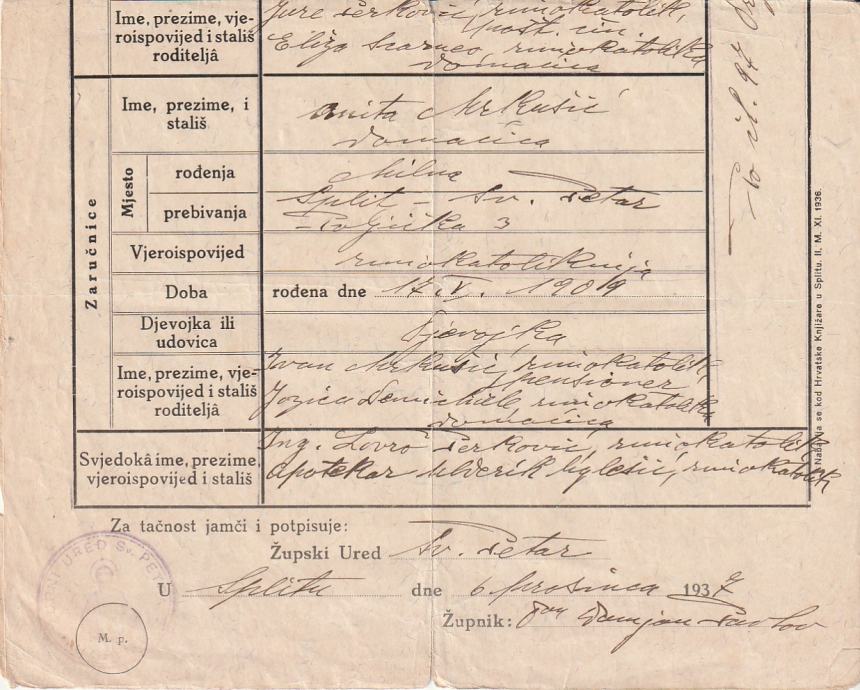 Ime, prezime, vje-
roispovijed i stališ
roditeljâ
Jure Perković, rimokatolik,
pošt. čin.
Eliza rimokatolika
domaćica
Zaručnice
Ime, prezime, i
stališ
Anita Mrkušić
domaćica
Mjesto
rođenja
Milna
prebivanja
Split - Sv. Petar
- Poljička 3
Vjeroispovijed
rimokatolikinja
Doba
rođena dne 17. V. 1909
Djevojka ili
udovica
Djevojka
Ime, prezime, vje-
roispovijed i stališ
roditeljâ
Ivan Mrkušić, rimokatolik,
pensioner
Jozica rimokatolika
domaćica
Svjedokâ ime, prezime,
vjeroispovijed i stališ
Ing. Lovro Perković, rimokatolik
apotekar rimokatolik
Po čl. 97
Nabavlja se kod Hrvatske Knjižare u Splitu. II. M. XI. 1936.
Za tačnost jamči i potpisuje:
Župski Ured Sv. Petar
U Splitu dne 6 prosinca 1937
Župnik: Don Damjan Pavlov
URED Sv. PE
M. p.